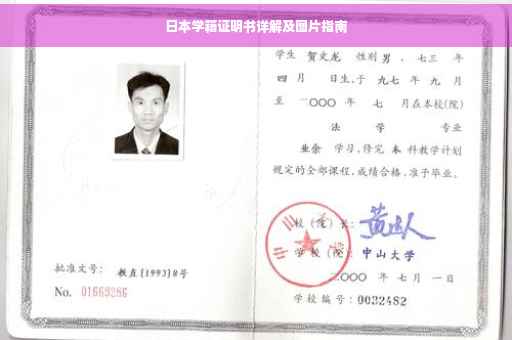 日本学籍证明书详解及图片指南
学生 贺文龙 性别 男 、七三 年
四 月 日生,于 九七 年 九 月
至 二〇〇〇 年 七 月在本校(院)
法 学 专业
业余 学习,修完 本 科教学计划
规定的全部课程,成绩合格,准予毕业。
校(院)长:
学 校(院) 中山大学
二〇〇〇 年 七 月 一 日
学校编号: 0032482
批准文号: 教直(1993)8号
No. 01669286